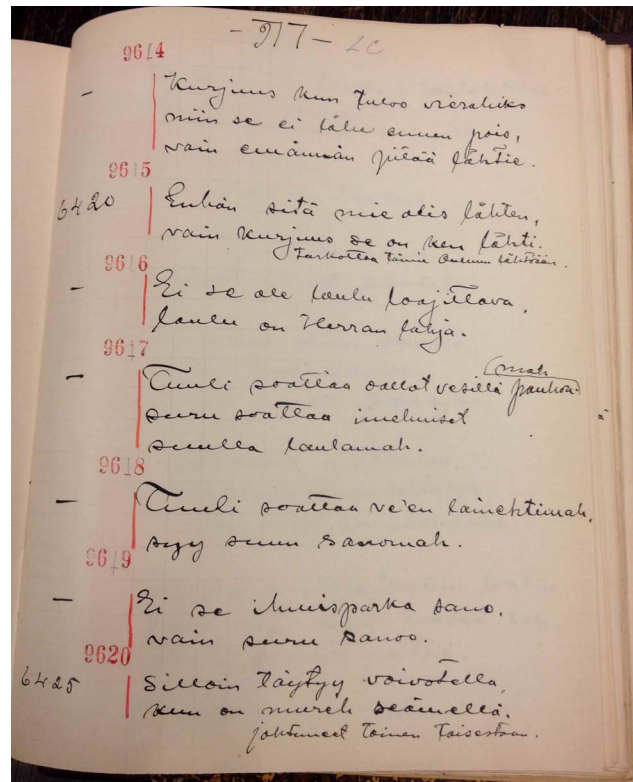 - 917 - 20
9614
- Kurjuus kun tuloo vierahiks
niin se ei lähe ennen pois,
vain emännän pitää lähtie.
9615
6420 Enhän sitä mie olis lähten,
vain kurjuus se on ken lähti.
Tarkottaa tänne lähtöään.
9616
- Ei se ole laulu laajittava,
laulu on Herran lahja.
9617
- Tuuli soattaa aallot vesillä pauhoa-
(mah
suru soattaa imehniset
suulla laulamah.
9618
- Tuuli soattaa ve'en lainehtimah,
syy suun sanomah.
9619
- Ei se ihmisparka sano,
vain suru sanoo.
9620
6425 Silloin täytyy voivotella,
kun on mureh seämellä.
johtuneet toinen toisestaan.